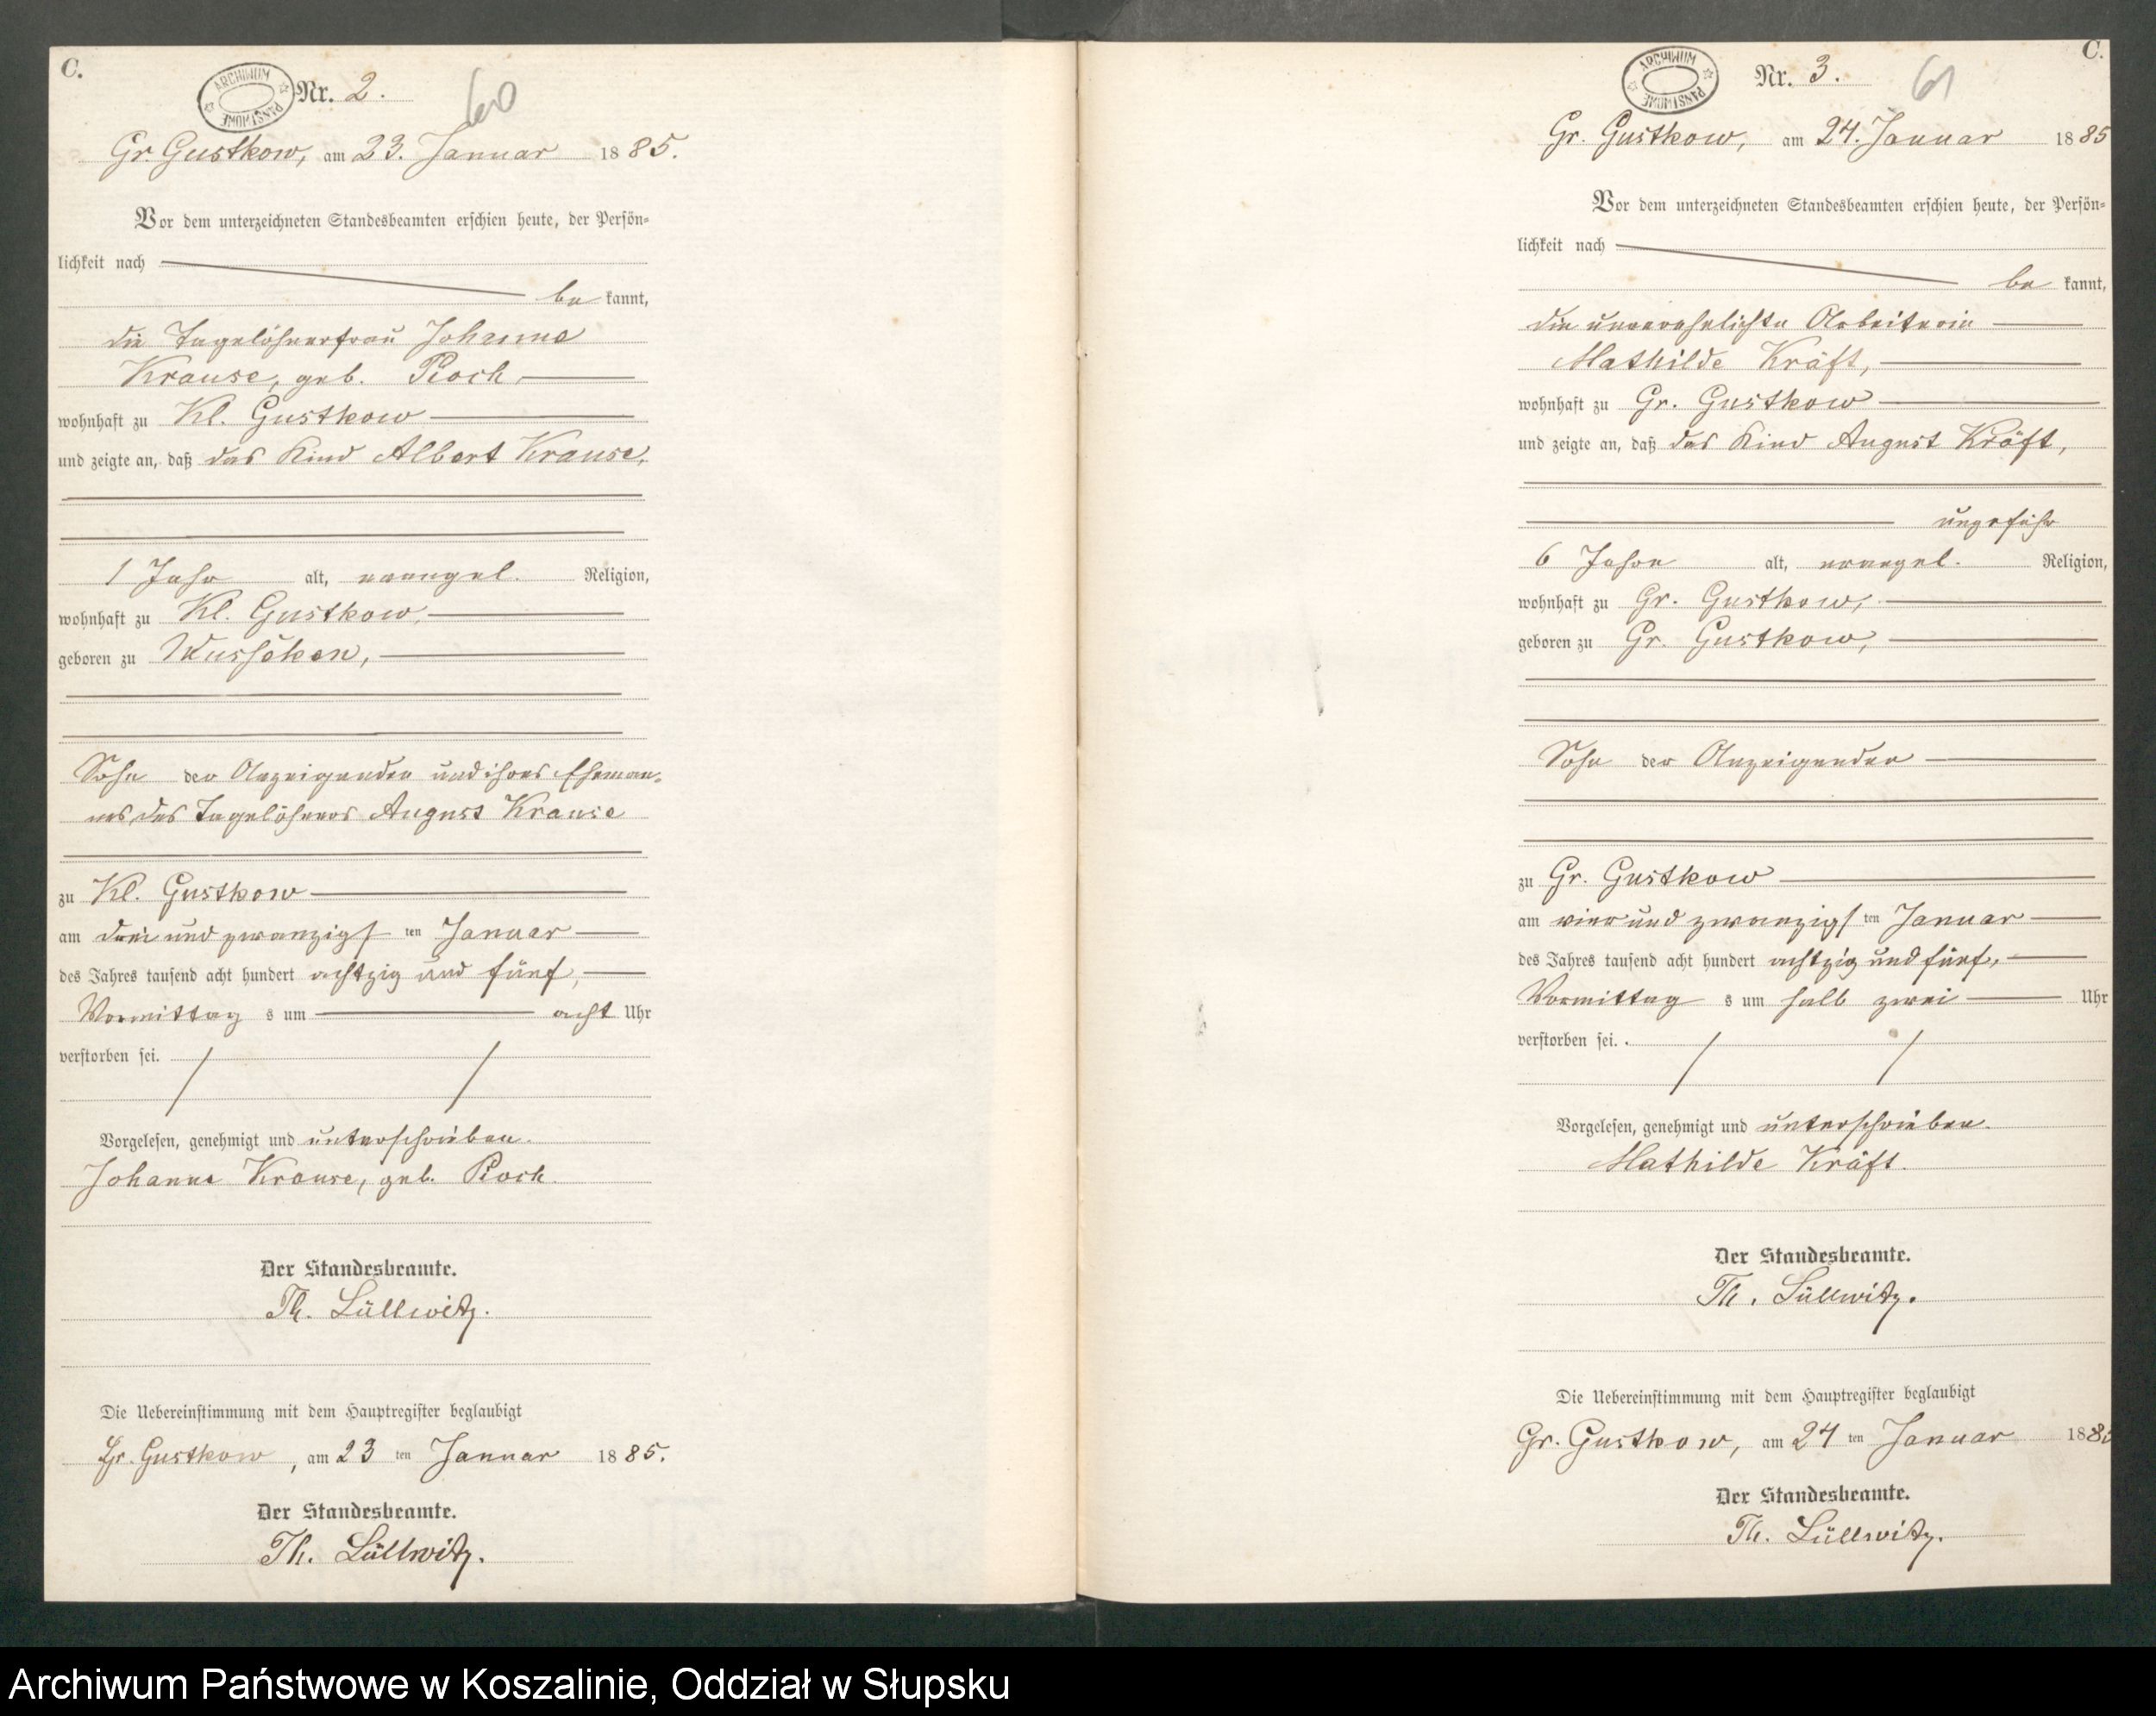 C.
ARCHIWUM PAŃSTWOWE
Nr. 2.
60
Gr. Gustkow, am 23. Januar 1885.
Vor dem unterzeichneten Standesbeamten erschien heute, der Persön-
lichkeit nach
be kannt,
die Tagelöhnerfrau Johanne
Krause, geb. Pioch,
wohnhaft zu Kl. Gustkow
und zeigte an, daß das Kind Albert Krause,
1 Jahr alt, evangel. Religion,
wohnhaft zu Kl. Gustkow,
geboren zu Wussöken,
Sohn der Anzeigenden und ihres Eheman-
nes des Tagelöhners August Krause
zu Kl. Gustkow
am drei und zwanzigs ten Januar
des Jahres tausend acht hundert achtzig und fünf,
Vormittag s um acht Uhr
verstorben sei.
Vorgelesen, genehmigt und unterschrieben.
Johanne Krause, geb. Pioch.
Der Standesbeamte.
Th. Lüllwitz.
Die Uebereinstimmung mit dem Hauptregister beglaubigt
Gr. Gustkow, am 23 ten Januar 1885.
Der Standesbeamte.
Th. Lüllwitz.
C.
ARCHIWUM PAŃSTWOWE
Nr. 3.
61
Gr. Gustkow, am 24. Januar 1885
Vor dem unterzeichneten Standesbeamten erschien heute, der Persön-
lichkeit nach
be kannt,
die unverehelichte Arbeiterin
Mathilde Kräft,
wohnhaft zu Gr. Gustkow
und zeigte an, daß das Kind August Kräft,
ungefähr
6 Jahre alt, evangel. Religion,
wohnhaft zu Gr. Gustkow,
geboren zu Gr. Gustkow,
Sohn der Anzeigenden
zu Gr. Gustkow
am vier und zwanzigs ten Januar
des Jahres tausend acht hundert achtzig und fünf,
Vormittag s um halb zwei Uhr
verstorben sei.
Vorgelesen, genehmigt und unterschrieben.
Mathilde Kräft.
Der Standesbeamte.
Th. Lüllwitz.
Die Uebereinstimmung mit dem Hauptregister beglaubigt
Gr. Gustkow, am 24 ten Januar 1885
Der Standesbeamte.
Th. Lüllwitz.
Archiwum Państwowe w Koszalinie, Oddział w Słupsku